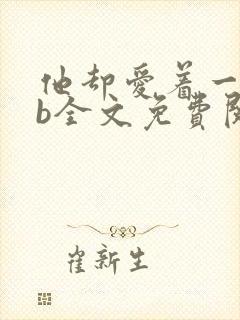 他却爱着一
b全文免費閱
崔新生